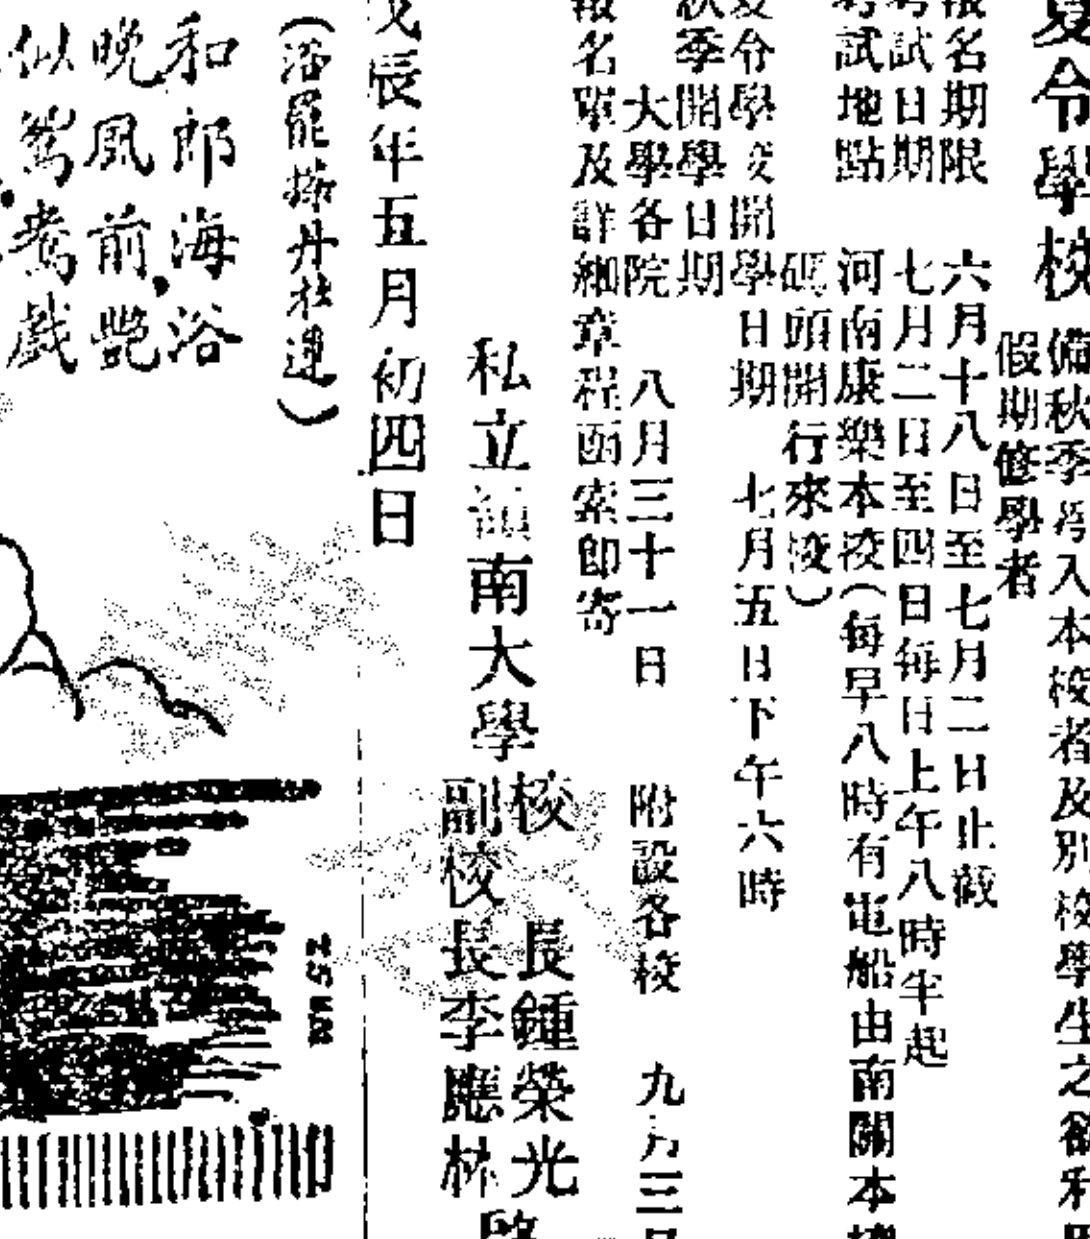 夏令學校
備秋季 入本校者及別校學生之欲利用
假期修學者
報名期限 六月十八日至七月二日止截
考試日期 七月二日至四日每日上午八時半起
考試地點 河南康樂本校(每早八時有電船由南關本
碼頭開行來校)
夏令學校開學日期 七月五日下午六時
秋季開學日期
大學各院 八月三十一日 附設各校 九月三日
報名單及詳細章程函索即寄
私立嶺南大學
校長鍾榮光
副校長李應林
啟
戊辰年五月初四日
(浴罷 丹 )
和郎海浴
晚風前艷
似鴛鴦戲